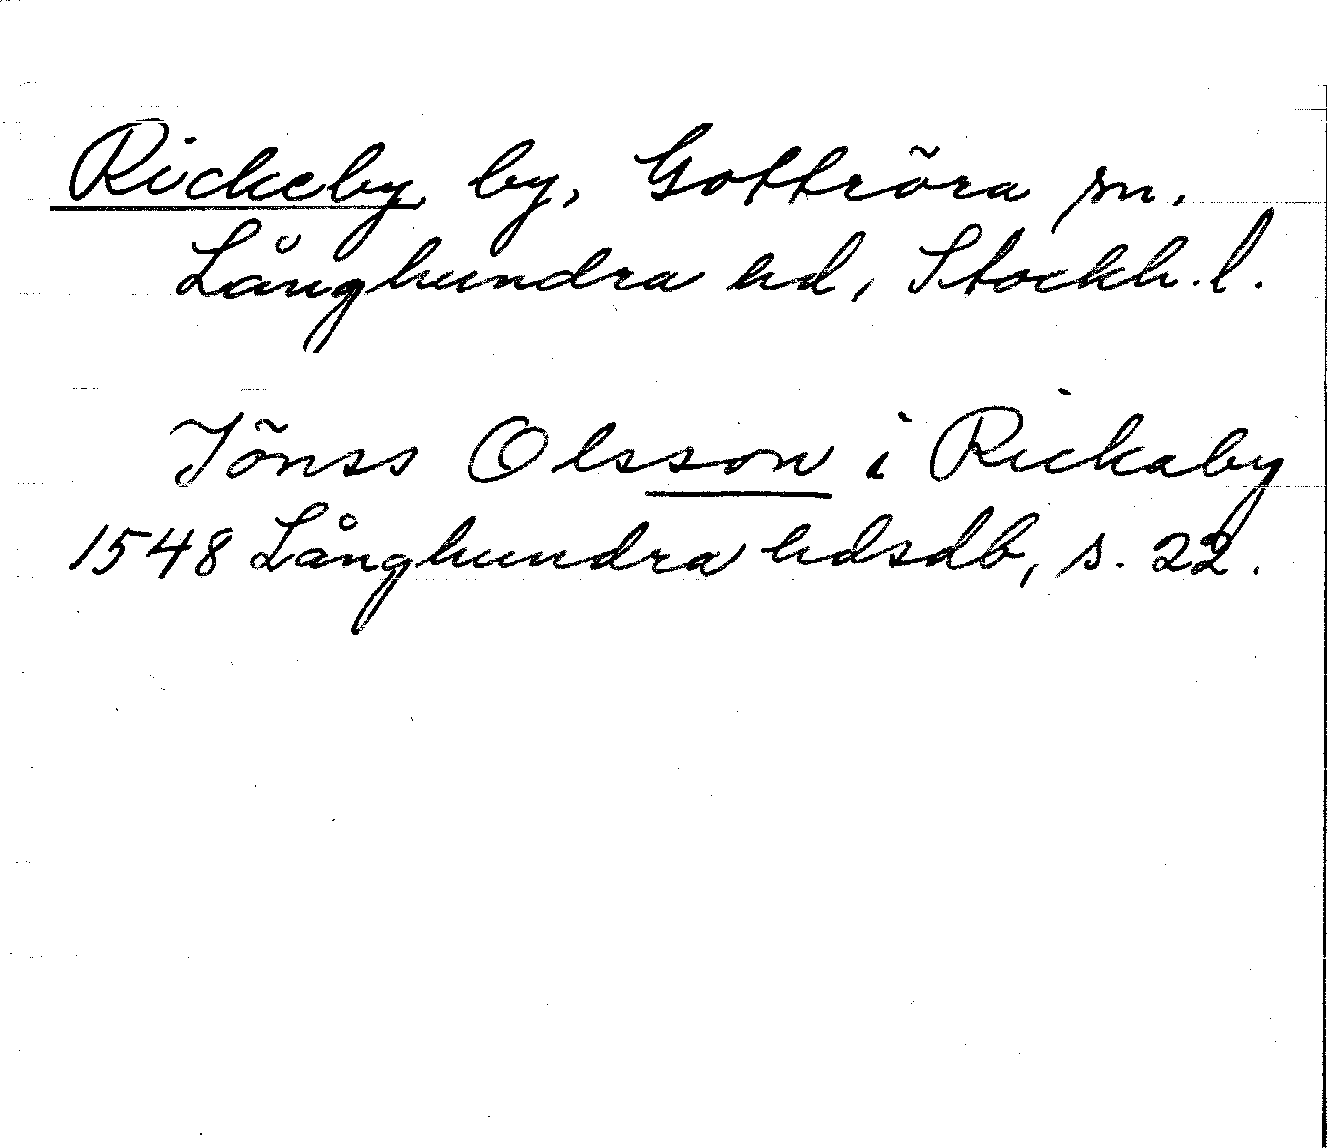 Rickeby by, Gottröra sn.
Långhundra hd, Stockh. l.
Jönss Olsson i Rickaby
1548 Långhundra hdsdb, s. 22.